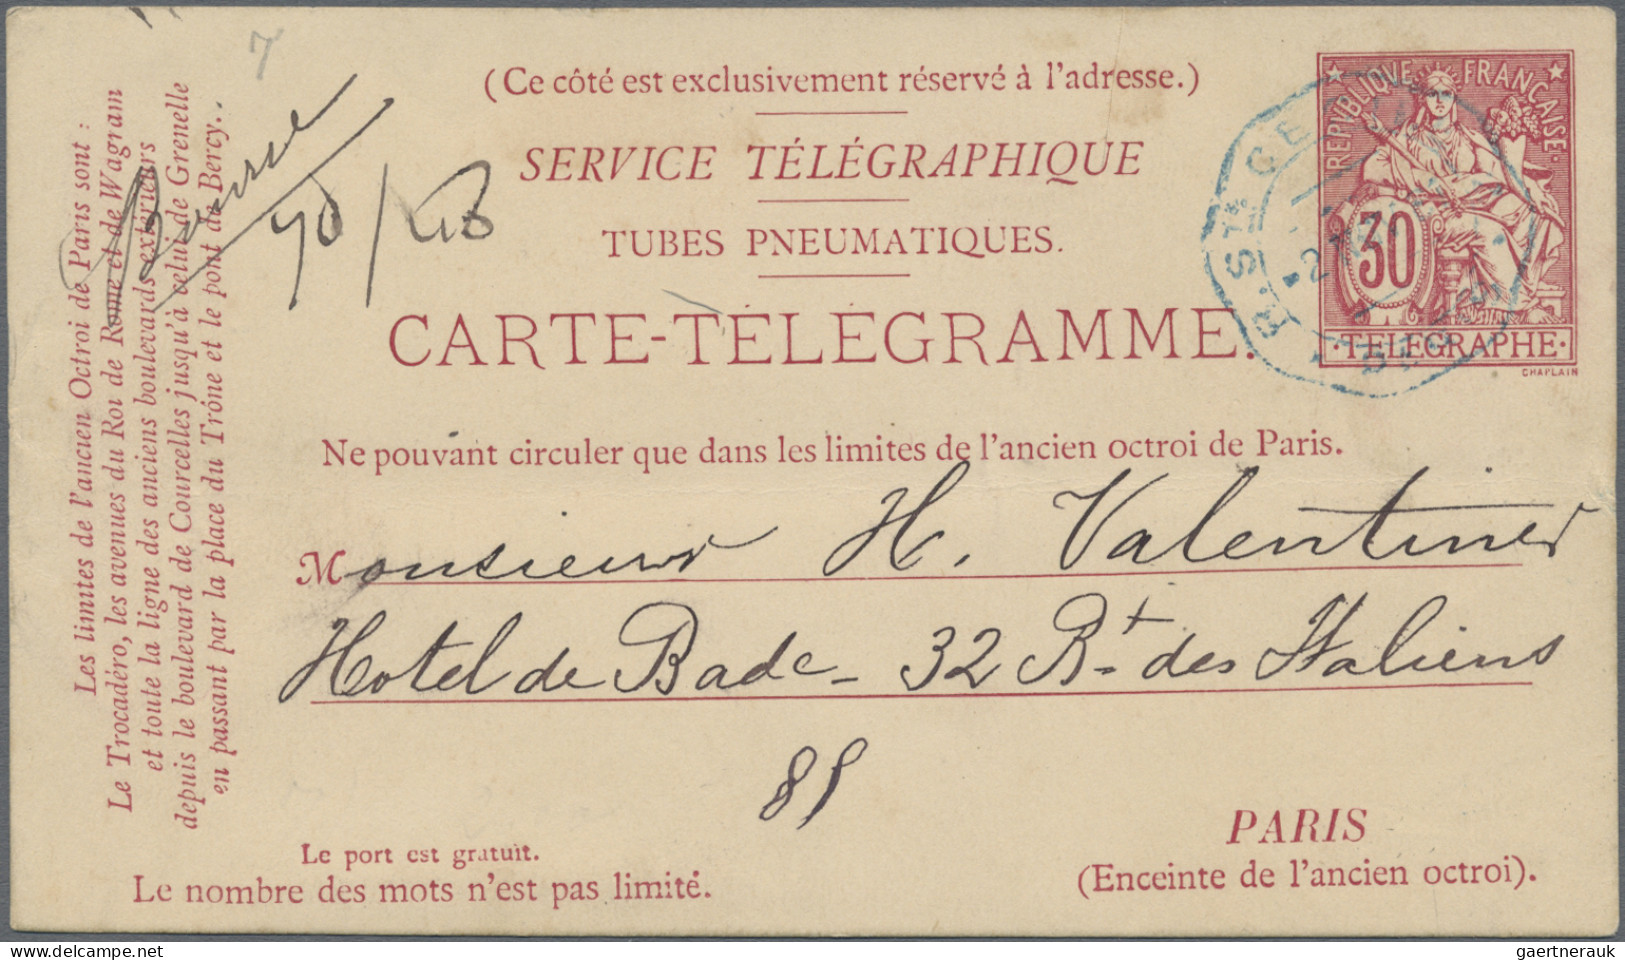 7
Bourse
(Ce côté est exclusivement réservé à l'adresse.)
SERVICE TÉLÉGRAPHIQUE
TUBES PNEUMATIQUES.
CARTE-TÉLÉGRAMME.
Ne pouvant circuler que dans les limites de l'ancien octroi de Paris.
RÉPUBLIQUE FRANÇAISE
30
TÉLÉGRAPHE
CHAPLAIN
R. STE CE
Les limites de l'ancien Octroi de Paris sont :
Le Trocadéro, les avenues du Roi de Rome et de Wagram
et toute la ligne des anciens boulevards extérieurs
depuis le boulevard de Courcelles jusqu'à celui de Grenelle
en passant par la place du Trône et le pont de Bercy.
Monsieur H. Valentiner
Hotel de Bade - 32 Bt des Italiens
85
PARIS
(Enceinte de l'ancien octroi).
Le port est gratuit.
Le nombre des mots n'est pas limité.
gaertnerauk